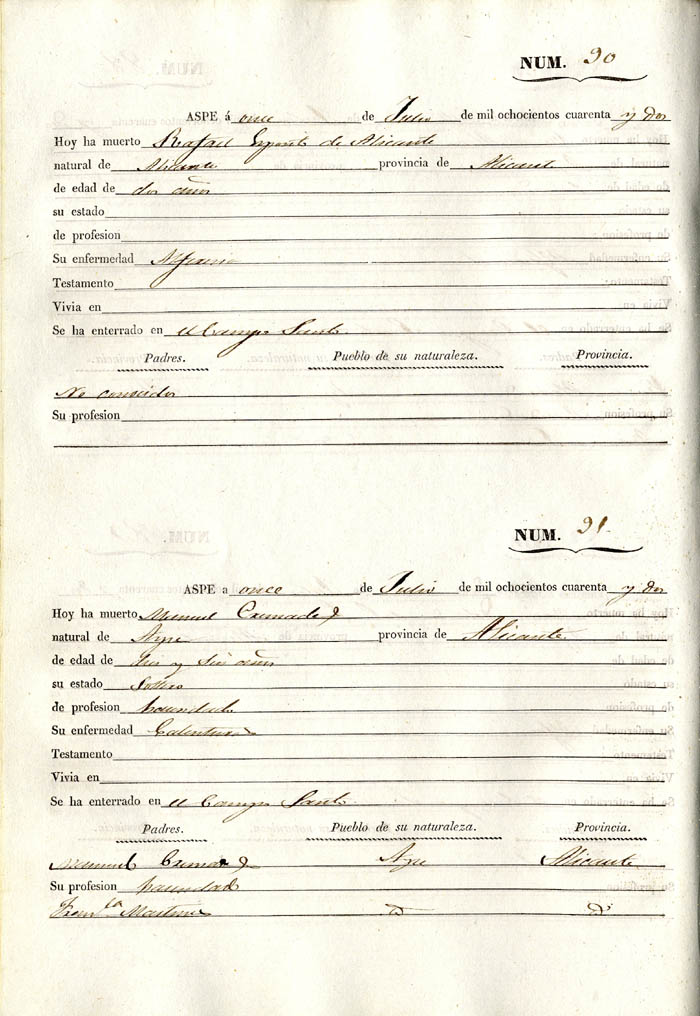 NUM. 90
ASPE á once de Julio de mil ochocientos cuarenta y dos
Hoy ha muerto Rafael Esposito de Alicante
natural de Alicante provincia de Alicante
de edad de dos años
su estado
de profesion
Su enfermedad
Testamento
Vivia en
Se ha enterrado en el Campo Santo
Padres. Pueblo de su naturaleza. Provincia.
No conocidos
Su profesion
NUM. 91
ASPE a once de Julio de mil ochocientos cuarenta y dos
Hoy ha muerto Manuel
natural de Aspe provincia de Alicante
de edad de y años
su estado Soltero
de profesion hacendado
Su enfermedad Calentura
Testamento
Vivia en
Se ha enterrado en el Campo Santo
Padres. Pueblo de su naturaleza. Provincia.
Manuel Aspe Alicante
Su profesion hacendado
Fran.ca Martinez